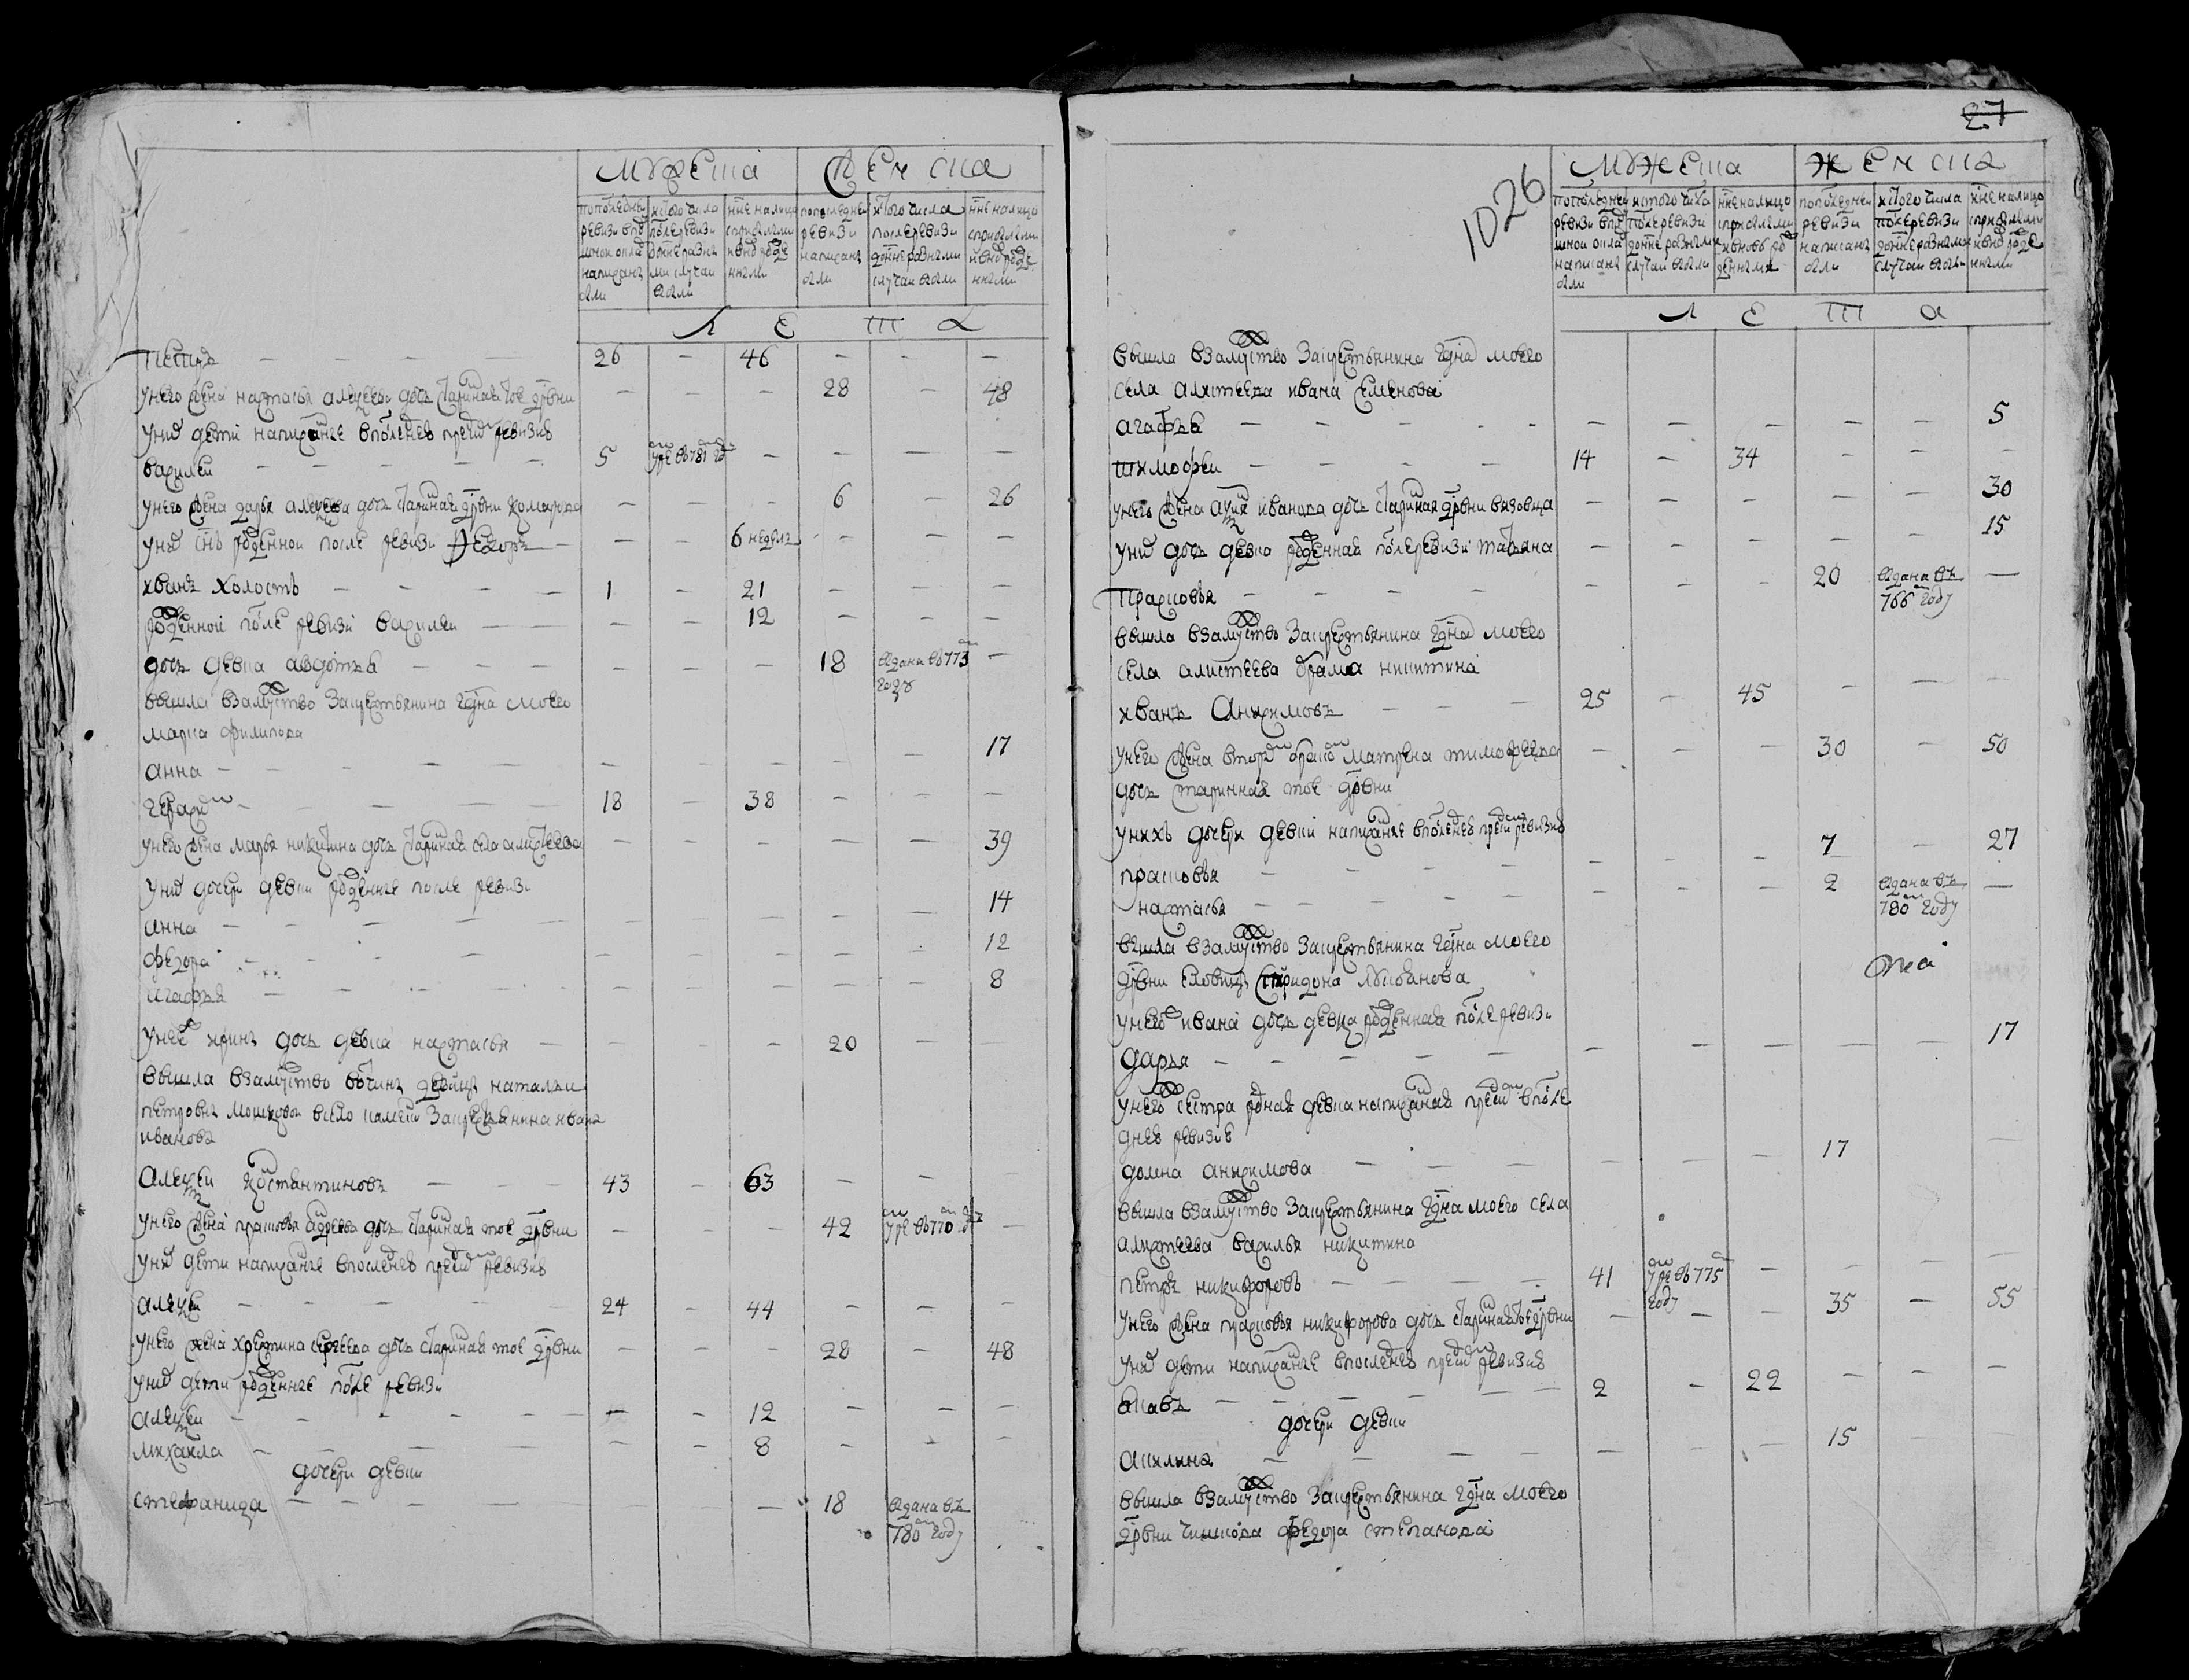 мужеска женска
попоследнеи ревизи впрошлои окладе написаны были
ис того числа после ревизи до ныне разными случаи выбыли
ныне налицо с прибылыми и вновь рожденными
попоследнеи ревизи написаны были
ис того числа после ревизи до ныне разными случаи выбыли
ныне налицо с прибылыми и вновь рожденными
лета
петръ — 26 — 46 — — —
унего жена настасья алексеева дочь старинная тое дрвни — — — 28 — 48
уних дети написанные впоследнеи пред сим ревизие
василеи — 5 умре въ 781 году — — — —
унего жена дарья алексеева дочь старинная дрвни комарова — — — 6 — 26
уних снъ рожденнои после ревизи федоръ — — — 6 недель — — —
иванъ холостъ — 1 — 21 — — —
рожденнои после ревизи василеи — — — 12 — — —
дочь девка авдотья — — — — 18 выдана въ 773 году —
вышла взамужство закрестьянина гдна моего
марка филипова
анна — — — — — — 17
герасим — 18 — 38 — — —
унего жена марья никитина дочь старинная села аликтеева — — — — — 39
уних дочери девки рожденные после ревизи
анна — — — — — — 14
федора — — — — — — 12
агафья — — — — — — 8
унее дочь девка настасья — — — — 20 —
вышла взамужство вотчины девицы натальи
петровны всело закрестьянина ивана
иванова
алексеи костантиновъ — 43 — 63 — — —
унего жена прасковья андреева дочь старинная тое дрвни — — — 42 умре въ 770 году —
уних дети написанные впоследнеи пред сим ревизие
алексеи — 24 — 44 — — —
унего жена христина сергеева дочь старинная тое дрвни — — — 28 — 48
уних дети рожденные после ревизи
алексеи — — — 12 — — —
михаила — — — 8 — — —
дочери девки
стефанида — — — — 18 выдана въ 780 году
27
1026
мужеска женска
попоследнеи ревизи впрошлои окладе написаны были
ис того числа после ревизи до ныне разными случаи выбыли
ныне налицо с прибылыми и вновь рожденными
попоследнеи ревизи написаны были
ис того числа после ревизи до ныне разными случаи выбыли
ныне налицо с прибылыми и вновь рожденными
лета
вышла взамужство закрестьянина гдна моего
села аликтеева ивана семенова
агафья — — — — — — 5
тимофеи — 14 — 34 — — —
унего жена иванова дочь старинная дрвни вязовца — — — — — 30
уних дочь девка рожденная после ревизи татьяна — — — — — 15
прасковья — — — — 20 выдана въ 766 году —
вышла взамужство закрестьянина гдна моего
села аликтеева никитина
иванъ анисимовъ — 25 — 45 — — —
унего жена вторым браком матрена тимофеева — — — 30 — 50
дочь старинная тое дрвни
унихъ дочери девки написанные впоследнеи пред сим ревизие
прасковья — — — — 7 — 27
настасья — — — — 2 выдана въ 780 году —
вышла взамужство закрестьянина гдна моего
дрвни спиридона
унего ивана дочь девка рожденная после ревизи
дарья — — — — — — 17
унего сестра родная девка написанная пред сим впосле
днеи ревизие
домна анисимова — — — — 17 —
вышла взамужство закрестьянина гдна моего села
аликтеева василья никитина
петръ никифоровъ — 41 умре въ 775 году — — — —
унего жена прасковья никифорова дочь старинная тое дрвни — — — 35 — 55
уних дети написанные впоследнеи пред сим ревизие
— 2 — 22 — — —
дочери девки
акилина — — — — 15
вышла взамужство закрестьянина гдна моего
дрвни федора степанова